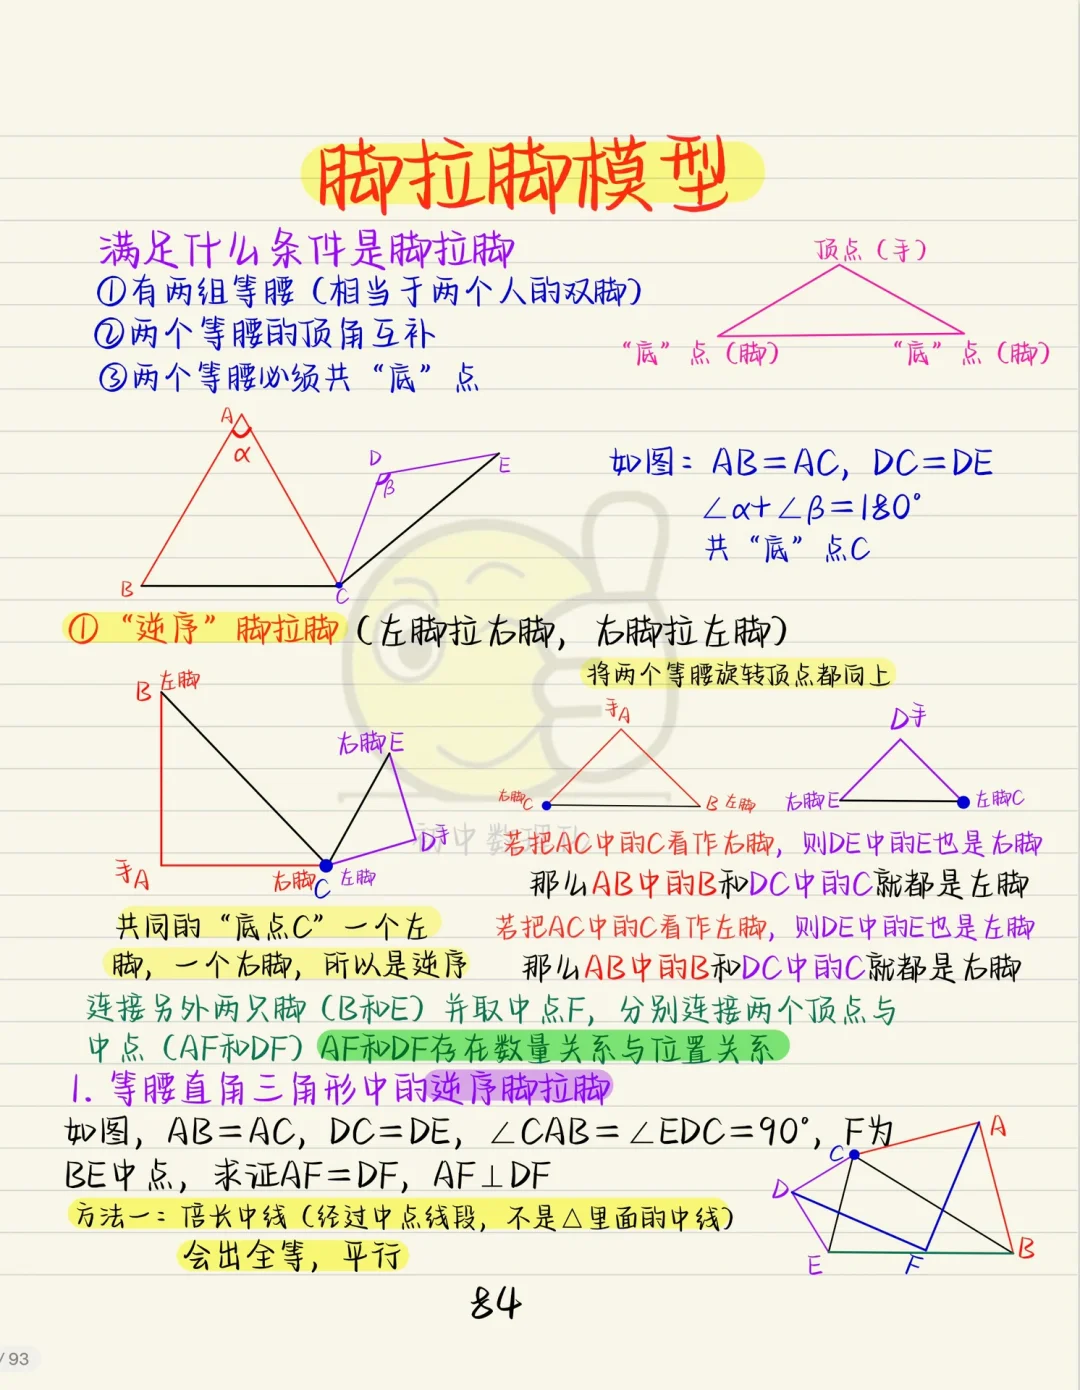 脚拉脚模型
满足什么条件是脚拉脚
①有两组等腰（相当于两个人的双脚）
②两个等腰的顶角互补
③两个等腰必须共“底”点
顶点（手）
“底”点（脚） “底”点（脚）
A
α
D
β
E
B
C
如图：AB=AC，DC=DE
∠α+∠β=180°
共“底”点C
①“逆序”脚拉脚（左脚拉右脚，右脚拉左脚）
将两个等腰旋转顶点都向上
B 左脚
右脚E
D手
手A
右脚C 左脚
手A
右脚C B 左脚
D手
右脚E 左脚C
初中数理化
若把AC中的C看作右脚，则DE中的E也是右脚
那么AB中的B和DC中的C就都是左脚
若把AC中的C看作左脚，则DE中的E也是左脚
那么AB中的B和DC中的C就都是右脚
共同的“底点C”一个左
脚，一个右脚，所以是逆序
连接另外两只脚（B和E）并取中点F，分别连接两个顶点与
中点（AF和DF）AF和DF存在数量关系与位置关系
1. 等腰直角三角形中的逆序脚拉脚
如图，AB=AC，DC=DE，∠CAB=∠EDC=90°，F为
BE中点，求证AF=DF，AF⊥DF
方法一：倍长中线（经过中点线段，不是△里面的中线）
会出全等，平行
A
C
D
E
F
B
84
/93